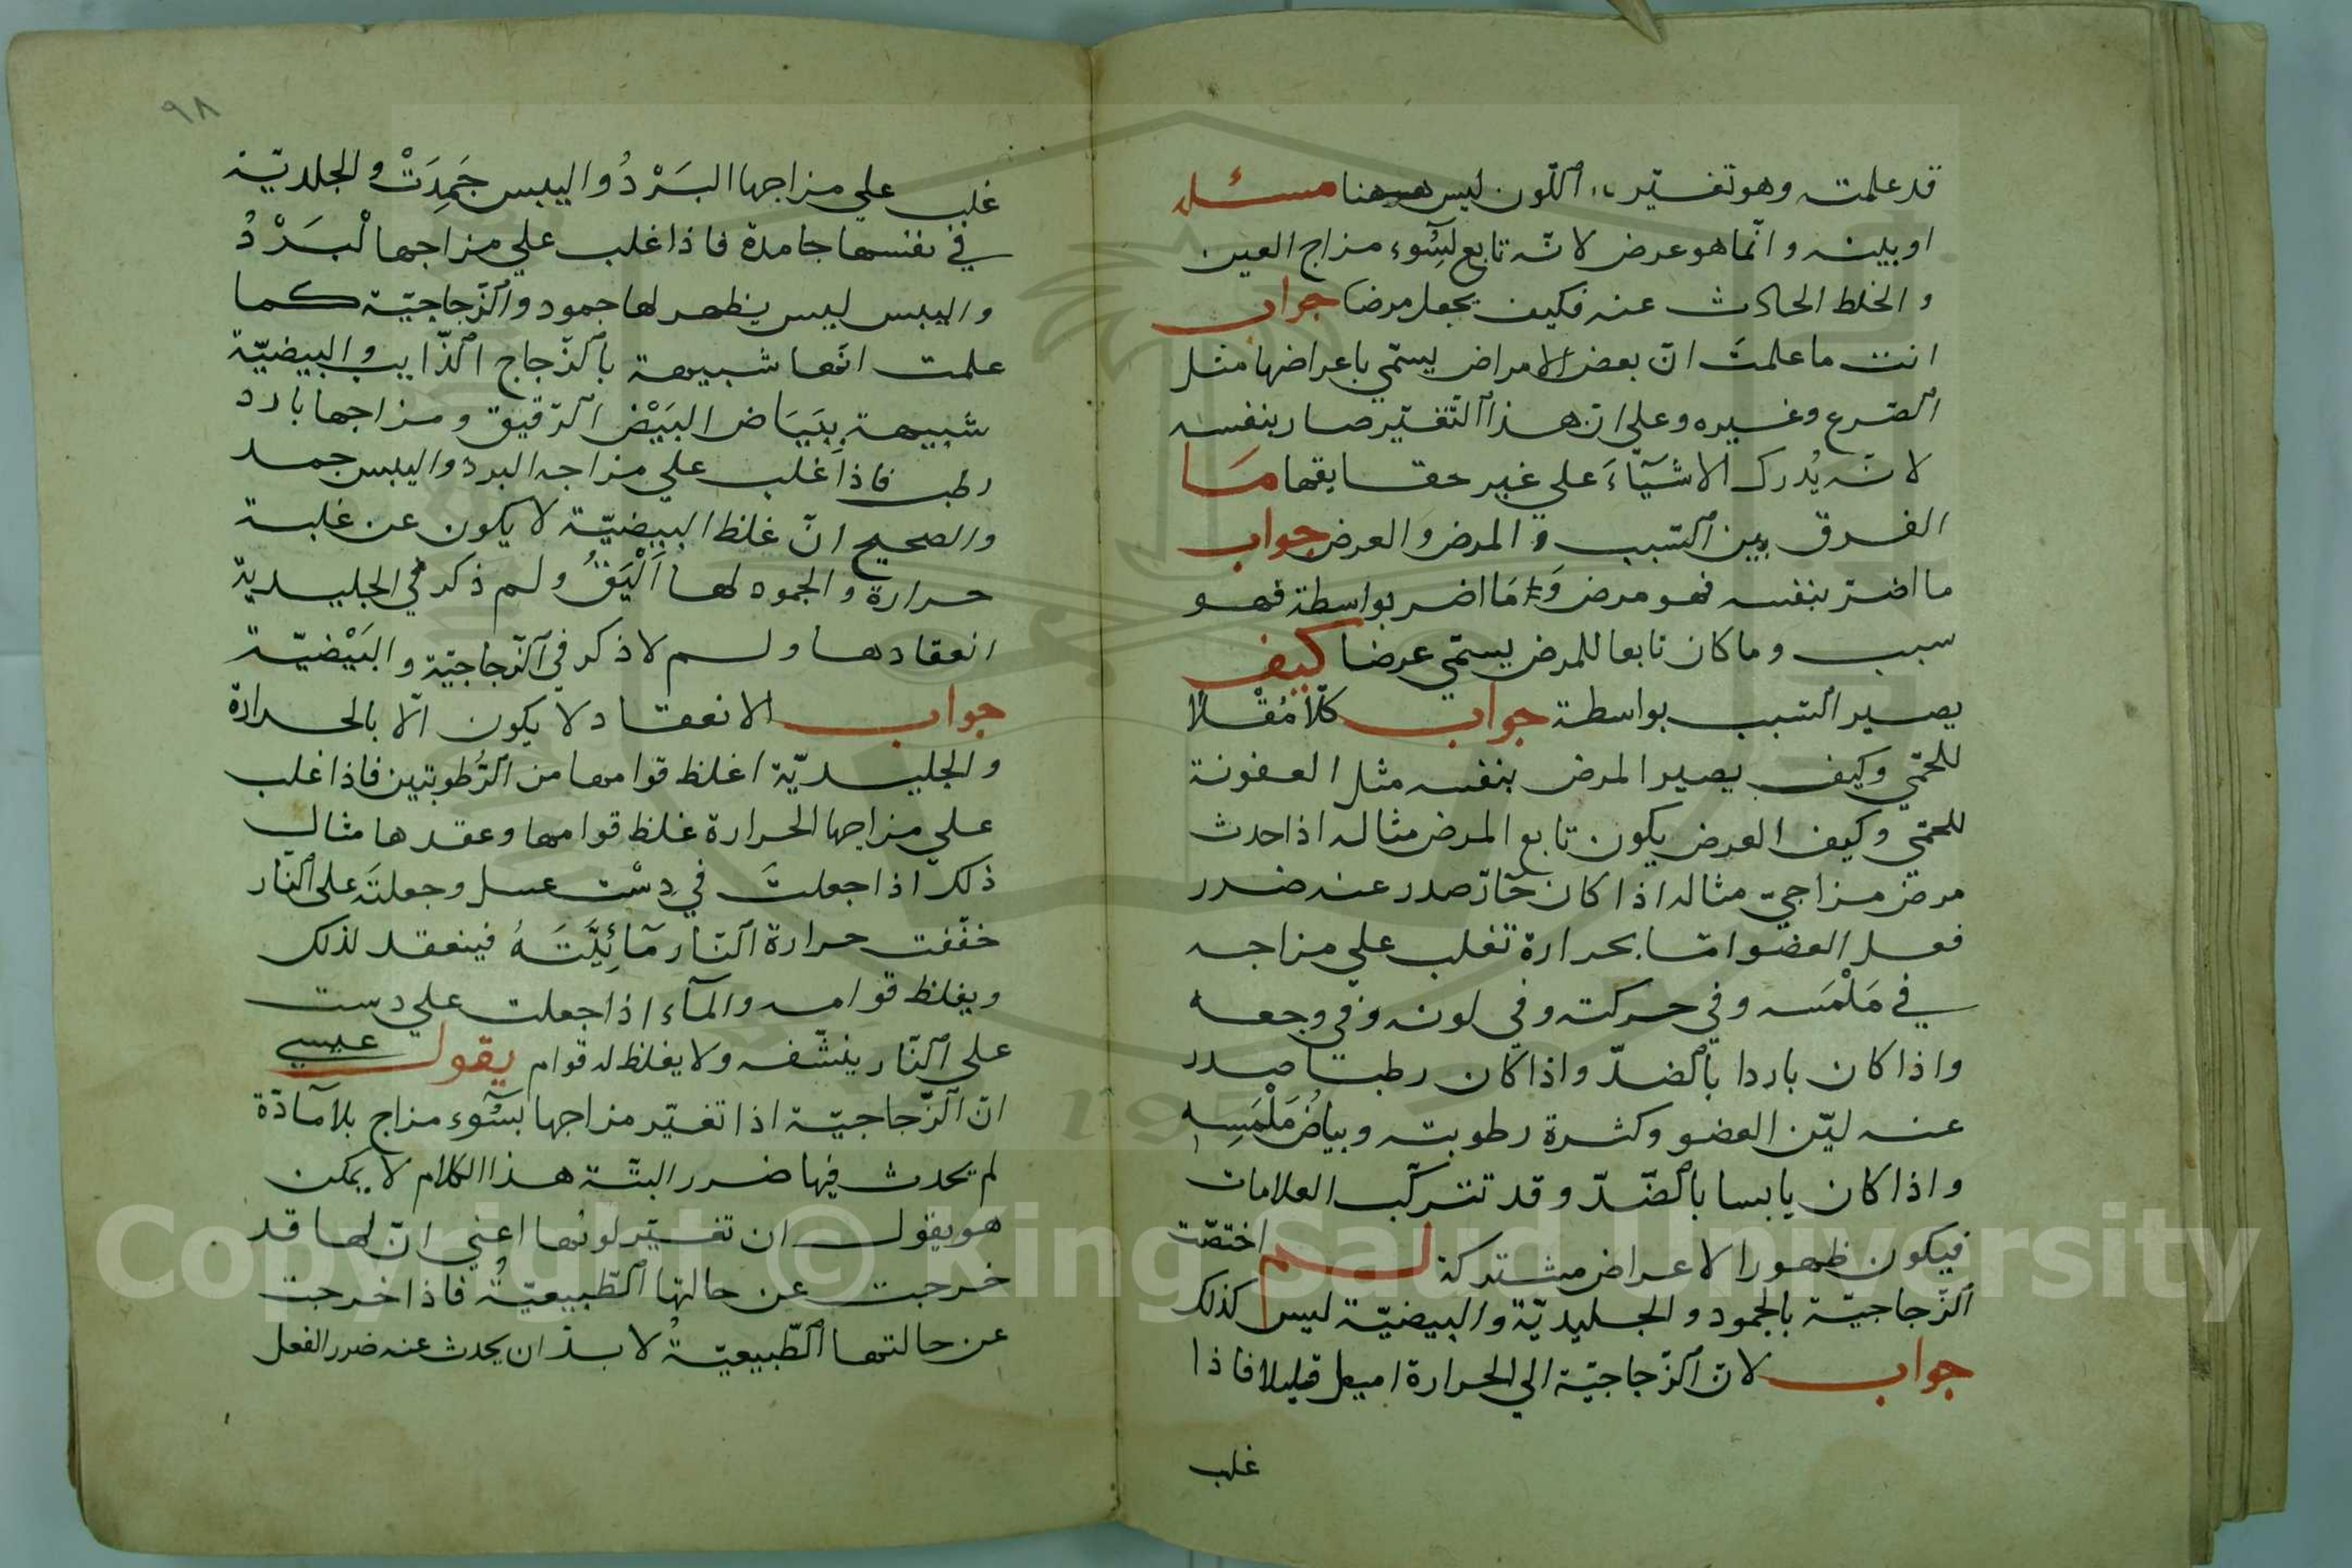 قد علمته وهو تغيّر اللّون ليس ههنا مسئله
او بينه وانّما هو عرض لانّه تابع لسُوء مزاج العين
والخلط الحادث عنه فكيف يجعل مرضا جواب
انت ما علمتَ انّ بعض الامراض يسمّي باعراضها مثل
الصّرع وغيره وعلي انّ هذا التّغيّر صار بنفسه
لانّه يُدرك الاشيآءَ علي غير حقايقها مَا
الفرق بين السّبب والمرض والعرض جواب
ما اضرّ بنفسه فهو مرض وَامَا اضر بواسطة فهو
سبب وما كان تابعا للمرض يسمّي عرضا كيف
يصير السّبب بواسطة جواب
للحمّي وكيف يصير المرض بنفسه مثل العفونة
للحمّي وكيف العرض يكون تابع المرض مثاله اذا حدث
مرض مزاجيّ مثاله اذا كان حَارّ صدر عنه ضرر
فعل العضو امّا بحرارة تغلب علي مزاجه
في مَلْمَسه وفي حركته وفي لونه وفي وجعه
واذا كان باردا بالضدّ واذا كان رطبا صدر
عنه ليّن العضو وكثرة رطوبته وبياضُ مَلْمَسِه
واذا كان يابسا بالضّدّ وقد تتركّب العلامات
فيكون ظهور الاعراض مشتركة لم اختصّت
الزّجاجيّة بالجمود والجليديّة والبيضيّة ليس كذلك
جواب لانّ الزّجاجيّة الي الحرارة اميل قليلا فاذا
غلب
٩٨
غلب علي مزاجها البَرْدُ واليبس جَمِدَتْ والجلديّة
في نفسها جامدة فاذا غلب علي مزاجها لْبَرْدُ
واليبس ليس يظهر لها جمود والزّجاجيّة كما
علمت انّها شبيهة بالزّجاج الذّايب والبيضيّة
شبيهة بِبَيَاض البَيْض الرّقيق ومزاجها بارد
رطب فاذا غلب علي مزاجه البرد واليبس جمد
والصحيح انّ غلظ البيضيّة لا يكون عن غلبة
حرارة والجمود لها اَلْيَقُ ولم ذكر في الجليديّة
انعقادها ولم لا ذكر في الزّجاجيّة والبَيْضيّة
جواب الانعقاد لا يكون الّا بالحرارة
والجليديّة اغلظ قوامها من الرّطوبتين فاذا غلب
علي مزاجها الحرارة غلظ قوامها وعقدها مثال
ذلك اذا جعلتَ في دِسْت عسل وجعلتَه علي النّار
خفّفت حرارة النّار مَآئِيَّتَهُ فينعقد لذلك
ويغلظ قوامه والمآء اذا جعلت علي دست
علي النّار ينشّفه ولا يغلظ له قوام يقول عيسي
انّ الزّجاجيّة اذا تغيّر مزاجها بسُوء مزاج بلا مآدّة
لم يحدث فيها ضرر البتّة هذا الكلام لا يمكن
هو يقول ان تغيّر لونها اعني انّ لها قد
خرجت عن حالتها الطّبيعيّة فاذا خرجت
عن حالتها الطّبيعيّة لا بدّ ان يحدث عنه ضرر الفعل
Copyright © King Saud University